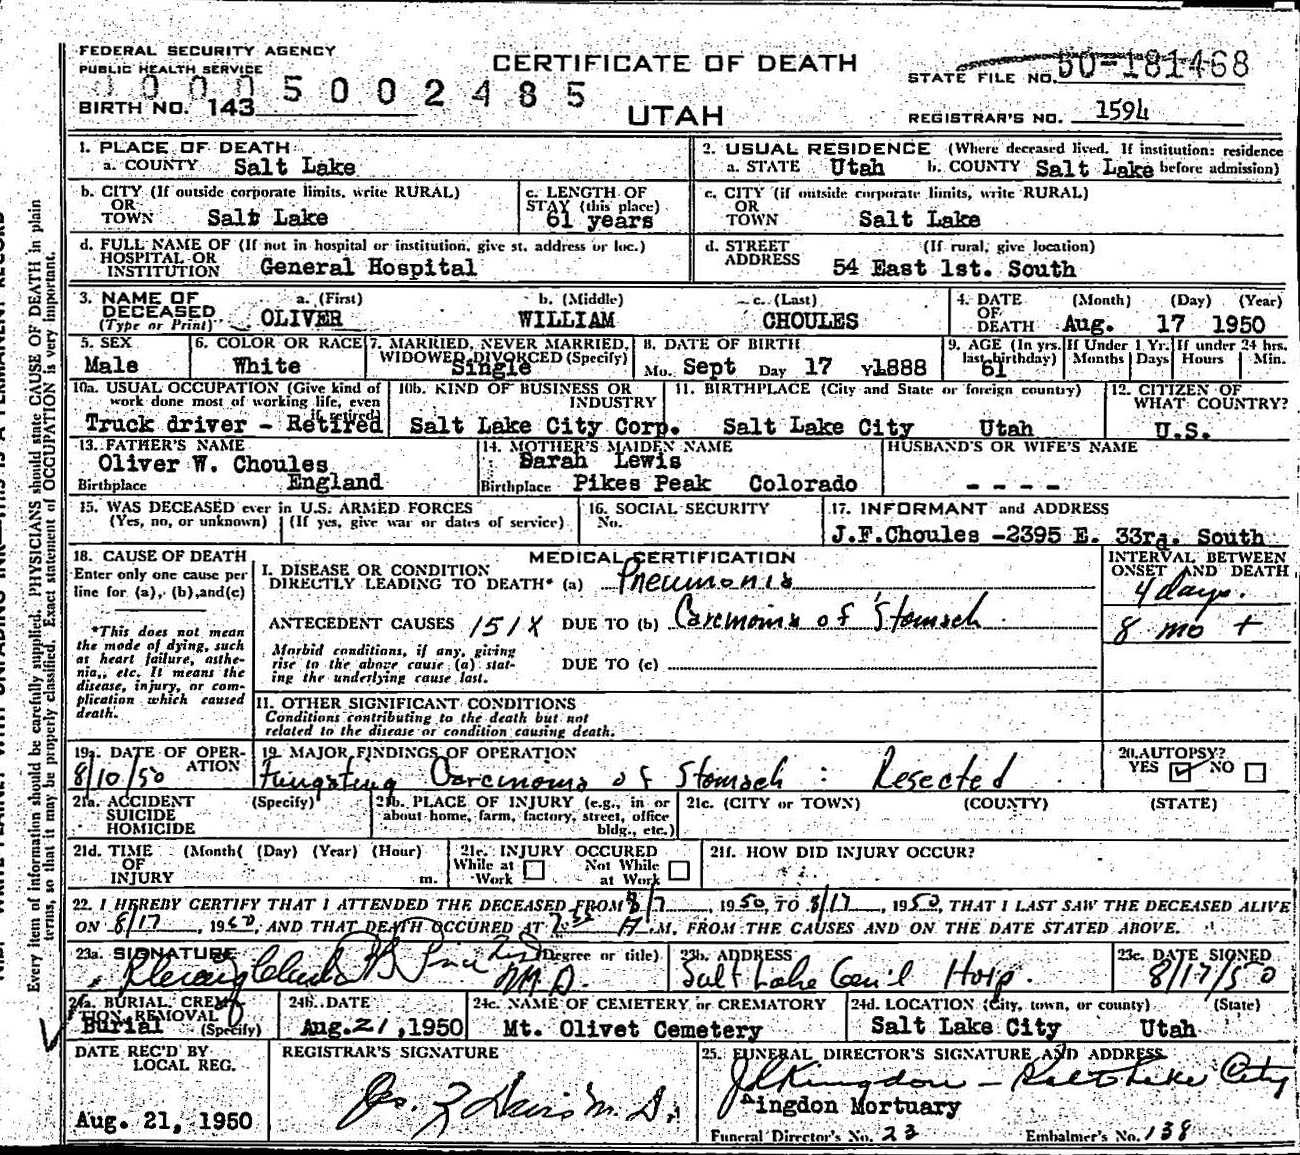 FEDERAL SECURITY AGENCY
PUBLIC HEALTH SERVICE
CERTIFICATE OF DEATH
STATE FILE NO. 50-181468
0 0 0 0 5 0 0 2 4 8 5
BIRTH NO. 143
UTAH
REGISTRAR'S NO. 1594
1. PLACE OF DEATH
a. COUNTY Salt Lake
2. USUAL RESIDENCE (Where deceased lived. If institution: residence
a. STATE Utah b. COUNTY Salt Lake before admission)
b. CITY (If outside corporate limits, write RURAL)
OR
TOWN Salt Lake
c. LENGTH OF
STAY (this place)
61 years
c. CITY (if outside corporate limits, write RURAL)
OR
TOWN Salt Lake
d. FULL NAME OF (If not in hospital or institution, give st. address or loc.)
HOSPITAL OR
INSTITUTION General Hospital
d. STREET (If rural, give location)
ADDRESS 54 East 1st. South
3. NAME OF DECEASED (Type or Print)
a. (First) OLIVER
b. (Middle) WILLIAM
c. (Last) CHOULES
4. DATE OF DEATH (Month) (Day) (Year)
Aug. 17 1950
5. SEX
Male
6. COLOR OR RACE
White
7. MARRIED, NEVER MARRIED,
WIDOWED, DIVORCED (Specify)
Single
8. DATE OF BIRTH
Mo. Sept Day 17 Y1888
9. AGE (In yrs. last birthday)
61
If Under 1 Yr. Months Days
If under 24 hrs. Hours Min.
10a. USUAL OCCUPATION (Give kind of
work done most of working life, even
if retired)
Truck driver - Retired
10b. KIND OF BUSINESS OR
INDUSTRY
Salt Lake City Corp.
11. BIRTHPLACE (City and State or foreign country)
Salt Lake City Utah
12. CITIZEN OF
WHAT COUNTRY?
U.S.
13. FATHER'S NAME
Oliver W. Choules
Birthplace England
14. MOTHER'S MAIDEN NAME
Sarah Lewis
Birthplace Pikes Peak Colorado
HUSBAND'S OR WIFE'S NAME
- - - -
15. WAS DECEASED ever in U.S. ARMED FORCES
(Yes, no, or unknown) (If yes, give war or dates of service)
16. SOCIAL SECURITY
No.
17. INFORMANT and ADDRESS
J.F.Choules -2395 E. 33rd. South
18. CAUSE OF DEATH
Enter only one cause per
line for (a), (b), and (c)
*This does not mean
the mode of dying, such
as heart failure, asthe-
nia, etc. It means the
disease, injury, or com-
plication which caused
death.
MEDICAL CERTIFICATION
I. DISEASE OR CONDITION
DIRECTLY LEADING TO DEATH* (a) Pneumonia
ANTECEDENT CAUSES 151X DUE TO (b) Carcinoma of Stomach
Morbid conditions, if any, giving
rise to the above cause (a) stat-
ing the underlying cause last.
DUE TO (c)
II. OTHER SIGNIFICANT CONDITIONS
Conditions contributing to the death but not
related to the disease or condition causing death.
INTERVAL BETWEEN
ONSET AND DEATH
4 days.
8 mo +
19a. DATE OF OPER-
ATION
8/10/50
19. MAJOR FINDINGS OF OPERATION
Fungating Carcinoma of Stomach : Resected
20. AUTOPSY?
YES ✓ NO
21a. ACCIDENT (Specify)
SUICIDE
HOMICIDE
21b. PLACE OF INJURY (e.g., in or
about home, farm, factory, street, office
bldg., etc.)
21c. (CITY or TOWN) (COUNTY) (STATE)
21d. TIME (Month) (Day) (Year) (Hour)
OF
INJURY m.
21e. INJURY OCCURED
While at Work Not While at Work
21f. HOW DID INJURY OCCUR?
22. I HEREBY CERTIFY THAT I ATTENDED THE DECEASED FROM 8/7, 1950, TO 8/17, 1950, THAT I LAST SAW THE DECEASED ALIVE
ON 8/17, 1950, AND THAT DEATH OCCURED AT A.M. FROM THE CAUSES AND ON THE DATE STATED ABOVE.
23a. SIGNATURE (Degree or title)
M.D.
23b. ADDRESS
Salt Lake Gen'l Hosp.
23c. DATE SIGNED
8/17/50
24a. BURIAL, CREMA-
TION, REMOVAL
Burial (Specify)
24b. DATE
Aug. 21, 1950
24c. NAME OF CEMETERY or CREMATORY
Mt. Olivet Cemetery
24d. LOCATION (City, town, or county) (State)
Salt Lake City Utah
DATE REC'D BY
LOCAL REG.
Aug. 21, 1950
REGISTRAR'S SIGNATURE
M. D.
25. FUNERAL DIRECTOR'S SIGNATURE AND ADDRESS
Kingdon - Salt Lake City
Kingdon Mortuary
Funeral Director's No. 23 Embalmer's No. 138
Every item of information should be carefully supplied. PHYSICIANS should state CAUSE OF DEATH in plain
terms, so that it may be properly classified. Exact statement of OCCUPATION is very important.